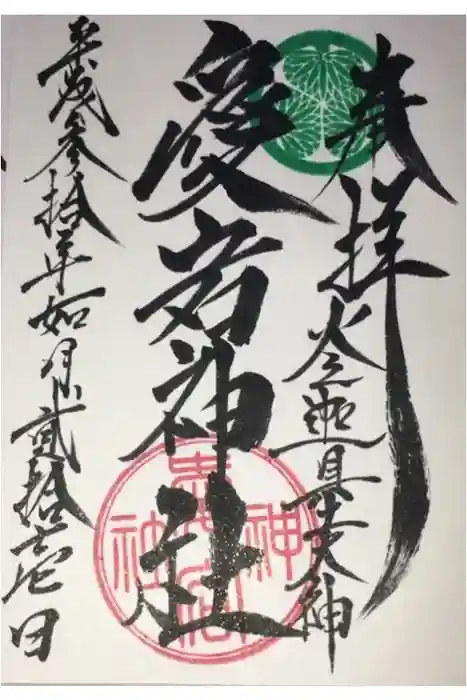 奉拝
火産霊大神
愛宕神社
平成参拾年如月貳拾壱日
愛宕神社